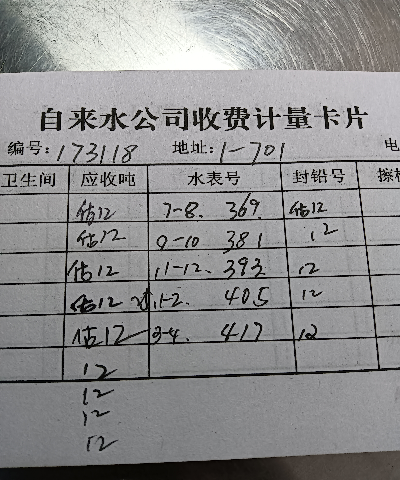 自来水公司收费计量卡片
编号:173118 地址:1-701 电
卫生间 应收吨 水表号 封铅号 擦
估12 7-8. 369 估12
估12 9-10 381 12
估12 11-12. 393 12
估12 1-2 405 12
估12 3-4. 417 12
12
12
12
12